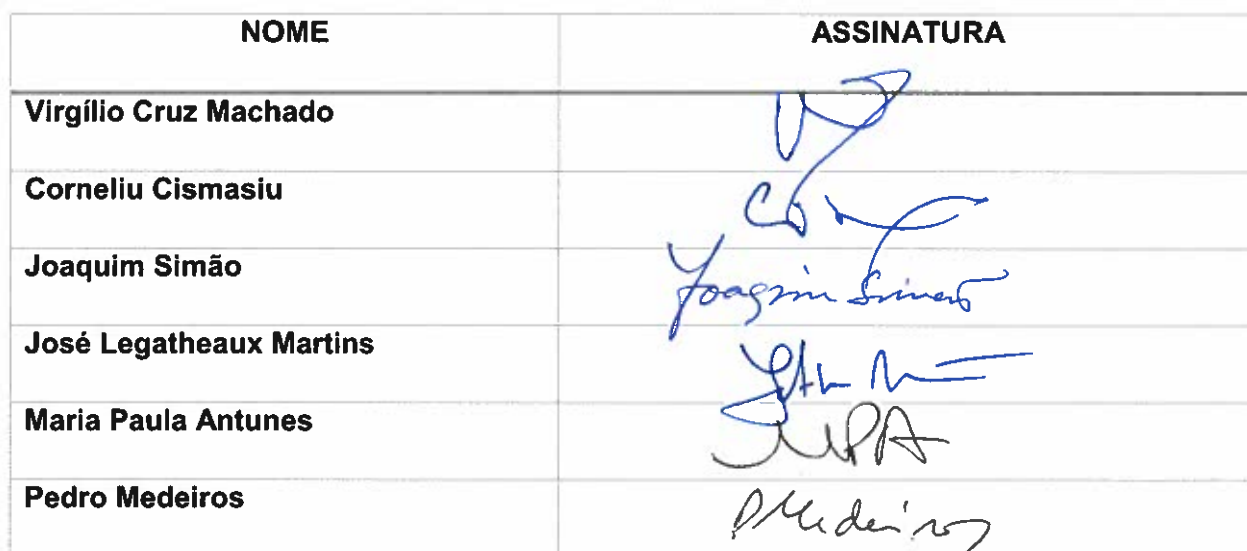 NOME ASSINATURA
Virgílio Cruz Machado
Corneliu Cismasiu
Joaquim Simão Joaquim Simão
José Legatheaux Martins
Maria Paula Antunes MPA
Pedro Medeiros PMedeiros